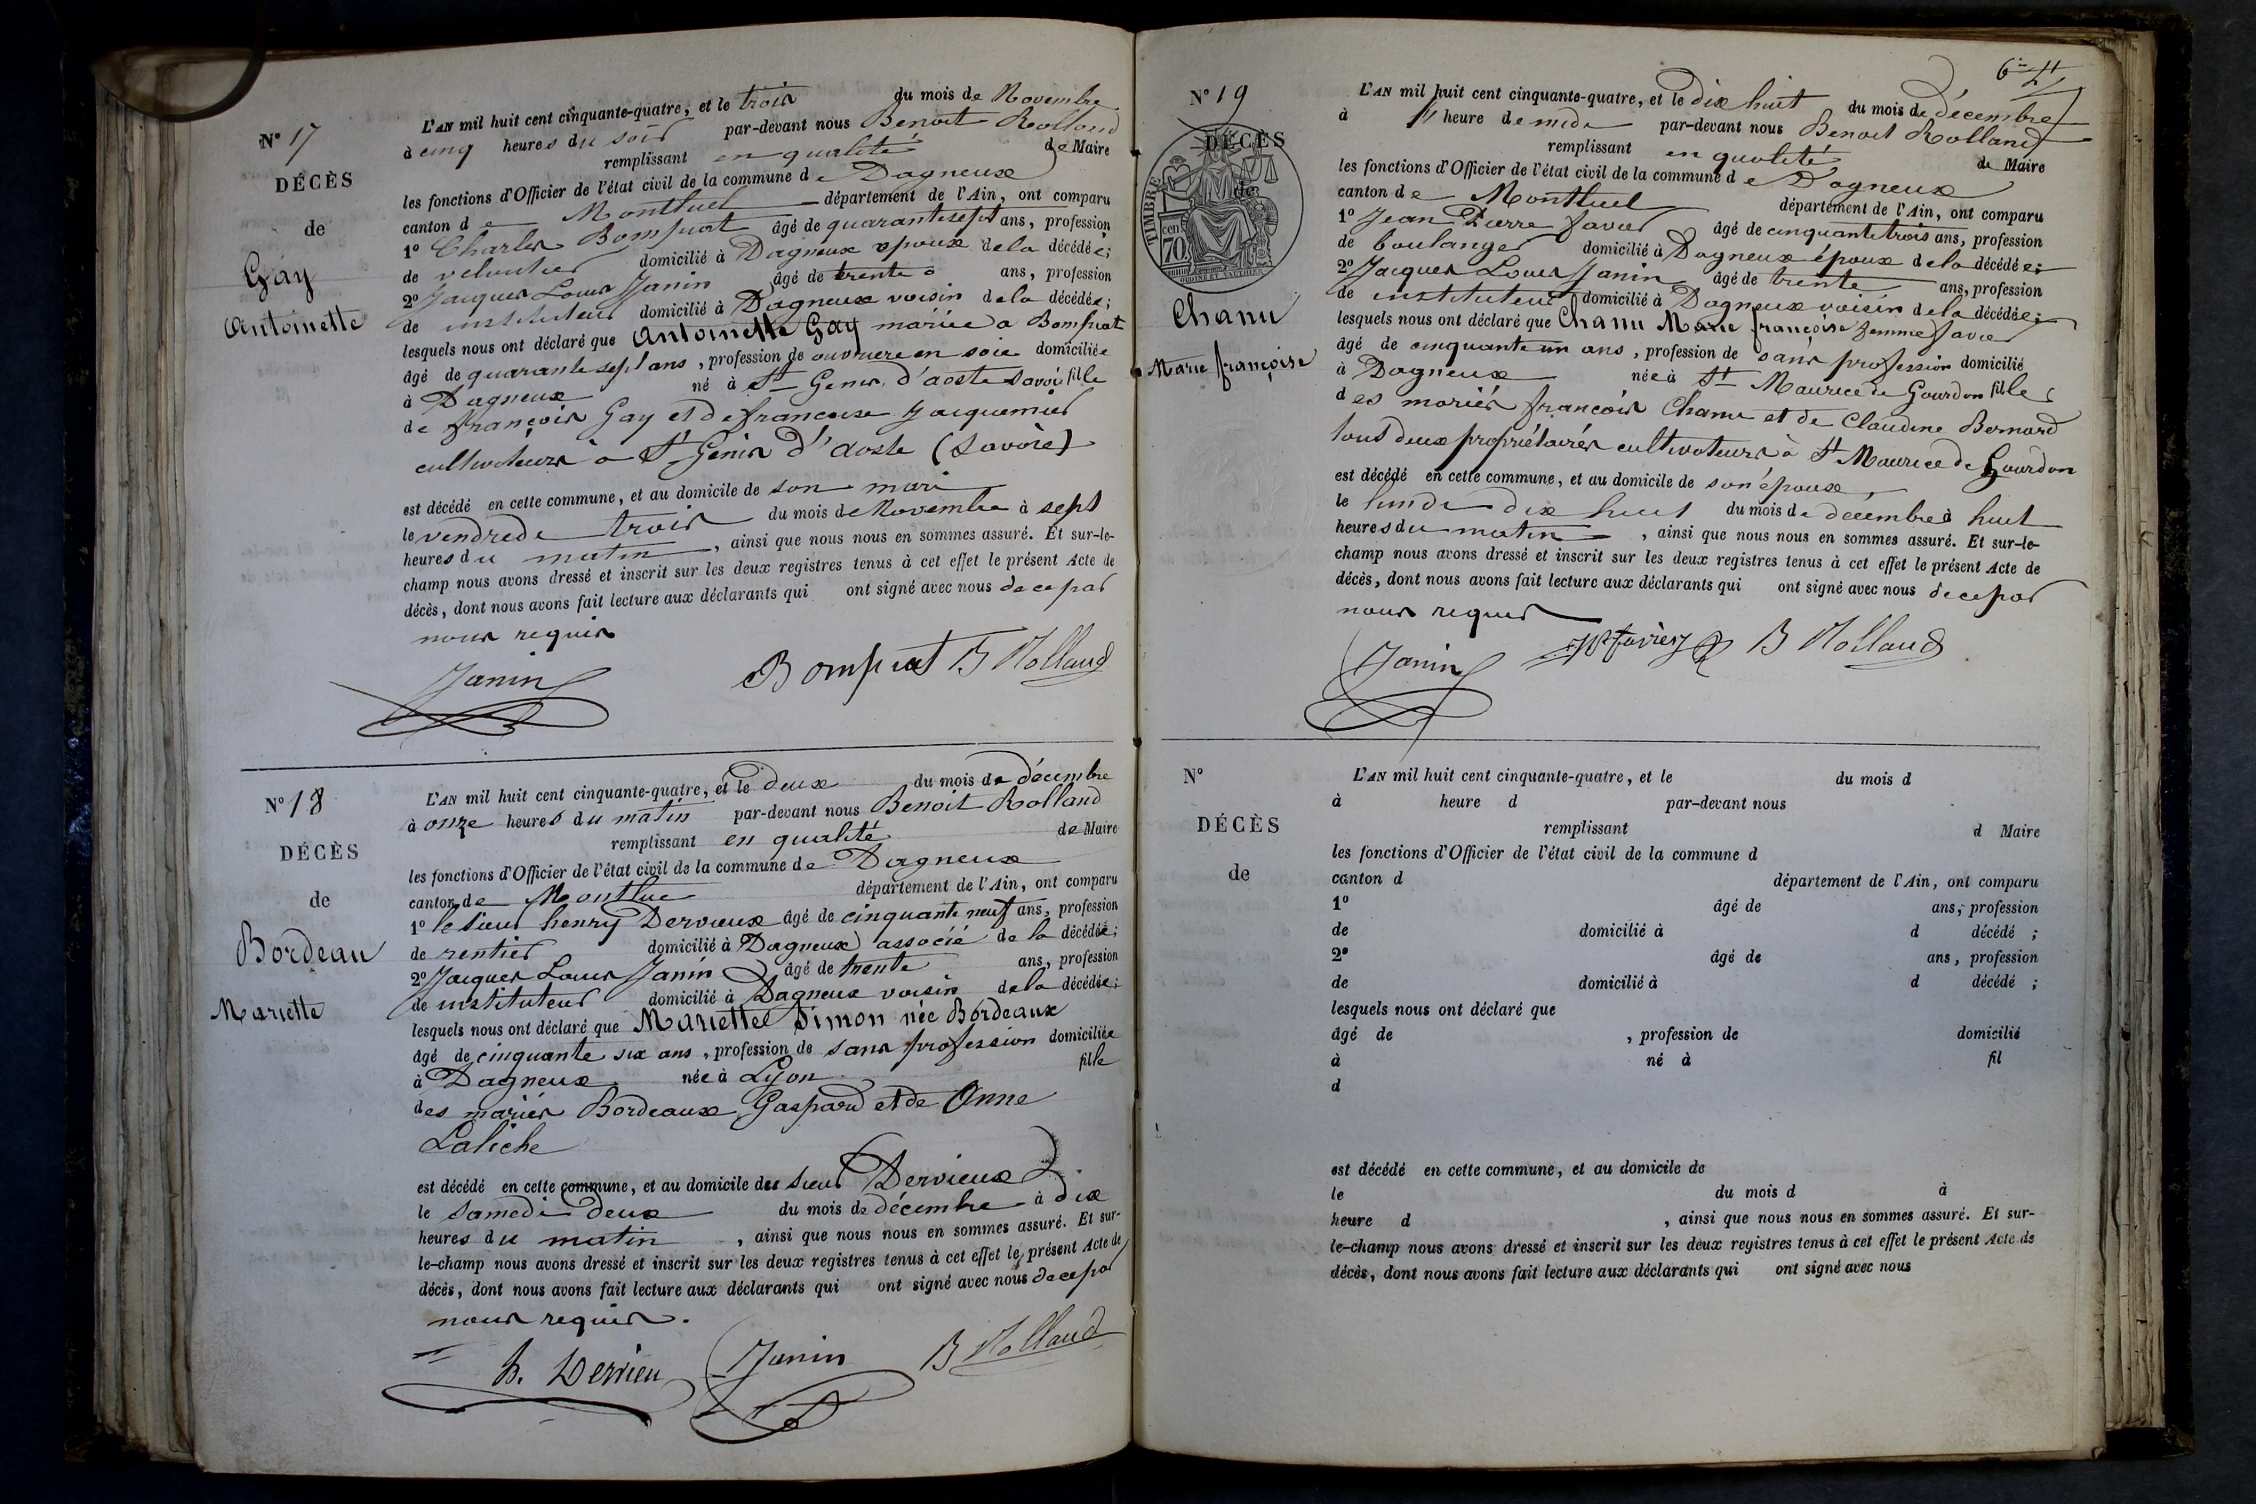 N° 17
DÉCÈS
de
Gay
Antoinette
L'AN mil huit cent cinquante-quatre, et le trois du mois de Novembre
à cinq heures du soir par-devant nous Benoit Rolland
remplissant en qualité de Maire
les fonctions d'Officier de l'état civil de la commune de Dagneux
canton de Montluel département de l'Ain, ont comparu
1° Charles Bompuat âgé de quarante sept ans, profession
de veloutier domicilié à Dagneux epoux de la décédée;
2° Jacques Louis Janin âgé de trente ans, profession
de instituteur domicilié à Dagneux voisin de la décédée;
lesquels nous ont déclaré que Antoinette Gay mariée a Bompuat
âgé de quarante sept ans, profession de ouvriere en soie domiciliée
à Dagneux né à St Genis d'aoste Savoie fille
de françois Gay et de francoise Jacquemier
cultivateurs a St Genis d'Aoste (Savoie)
est décédé en cette commune, et au domicile de son mari
le vendredi trois du mois de Novembre à sept
heures du matin, ainsi que nous nous en sommes assuré. Et sur-le-
champ nous avons dressé et inscrit sur les deux registres tenus à cet effet le présent Acte de
décès, dont nous avons fait lecture aux déclarants qui ont signé avec nous de ce par
nous requis
Janin Bompuat B Rolland
N° 18
DÉCÈS
de
Bordeau
Mariette
L'AN mil huit cent cinquante-quatre, et le deux du mois de décembre
à onze heures du matin par-devant nous Benoit Rolland
remplissant en qualité de Maire
les fonctions d'Officier de l'état civil de la commune de Dagneux
canton de Montlue département de l'Ain, ont comparu
1° le sieur henry Dervieux âgé de cinquante neuf ans, profession
de rentier domicilié à Dagneux associé de la décédée;
2° Jacques Louis Janin âgé de trente ans, profession
de instituteur domicilié à Dagneux voisin de la décédée;
lesquels nous ont déclaré que Mariette Simon née Bordeaux
âgé de cinquante six ans, profession de sans profession domiciliée
à Dagneux née à Lyon fille
des mariés Bordeaux Gaspard et de Anne
Laliche
est décédé en cette commune, et au domicile du sieur Dervieux
le Samedi deux du mois de décembre à dix
heures du matin, ainsi que nous nous en sommes assuré. Et sur-
le-champ nous avons dressé et inscrit sur les deux registres tenus à cet effet le présent Acte de
décès, dont nous avons fait lecture aux déclarants qui ont signé avec nous de ce par
nous requis.
h. Dervieu Janin B Rolland
N° 19
DÉCÈS
de
TIMBRE
70 cen
Chanu
Marie françoise
L'AN mil huit cent cinquante-quatre, et le dix huit du mois de décembre
à heure de midi par-devant nous Benoit Rolland
remplissant en qualité de Maire
les fonctions d'Officier de l'état civil de la commune de Dagneux
canton de Montluel département de l'Ain, ont comparu
1° Jean Pierre favier âgé de cinquante trois ans, profession
de boulanger domicilié à Dagneux époux de la décédée;
2° Jacques Louis Janin âgé de trente ans, profession
de instituteur domicilié à Dagneux voisin de la décédée;
lesquels nous ont déclaré que Chanu Marie françoise femme favier
âgé de cinquante un ans, profession de sans profession domicilié
à Dagneux née à St Maurice de Gourdon fille
des mariés françois Chanu et de Claudine Bernard
tous deux propriétaires cultivateurs à St Maurice de Gourdon
est décédé en cette commune, et au domicile de son époux
le lundi dix huit du mois de decembre à huit
heures du matin, ainsi que nous nous en sommes assuré. Et sur-le-
champ nous avons dressé et inscrit sur les deux registres tenus à cet effet le présent Acte de
décès, dont nous avons fait lecture aux déclarants qui ont signé avec nous de ce par
nous requis
Janin favier B Rolland
N°
DÉCÈS
de
L'AN mil huit cent cinquante-quatre, et le du mois d
à heure d par-devant nous
remplissant d Maire
les fonctions d'Officier de l'état civil de la commune d
canton d département de l'Ain, ont comparu
1° âgé de ans, profession
de domicilié à d décédé ;
2° âgé de ans, profession
de domicilié à d décédé ;
lesquels nous ont déclaré que
âgé de , profession de domicilié
à né à fil
d
est décédé en cette commune, et au domicile de
le du mois d à
heure d , ainsi que nous nous en sommes assuré. Et sur-
le-champ nous avons dressé et inscrit sur les deux registres tenus à cet effet le présent Acte de
décès, dont nous avons fait lecture aux déclarants qui ont signé avec nous